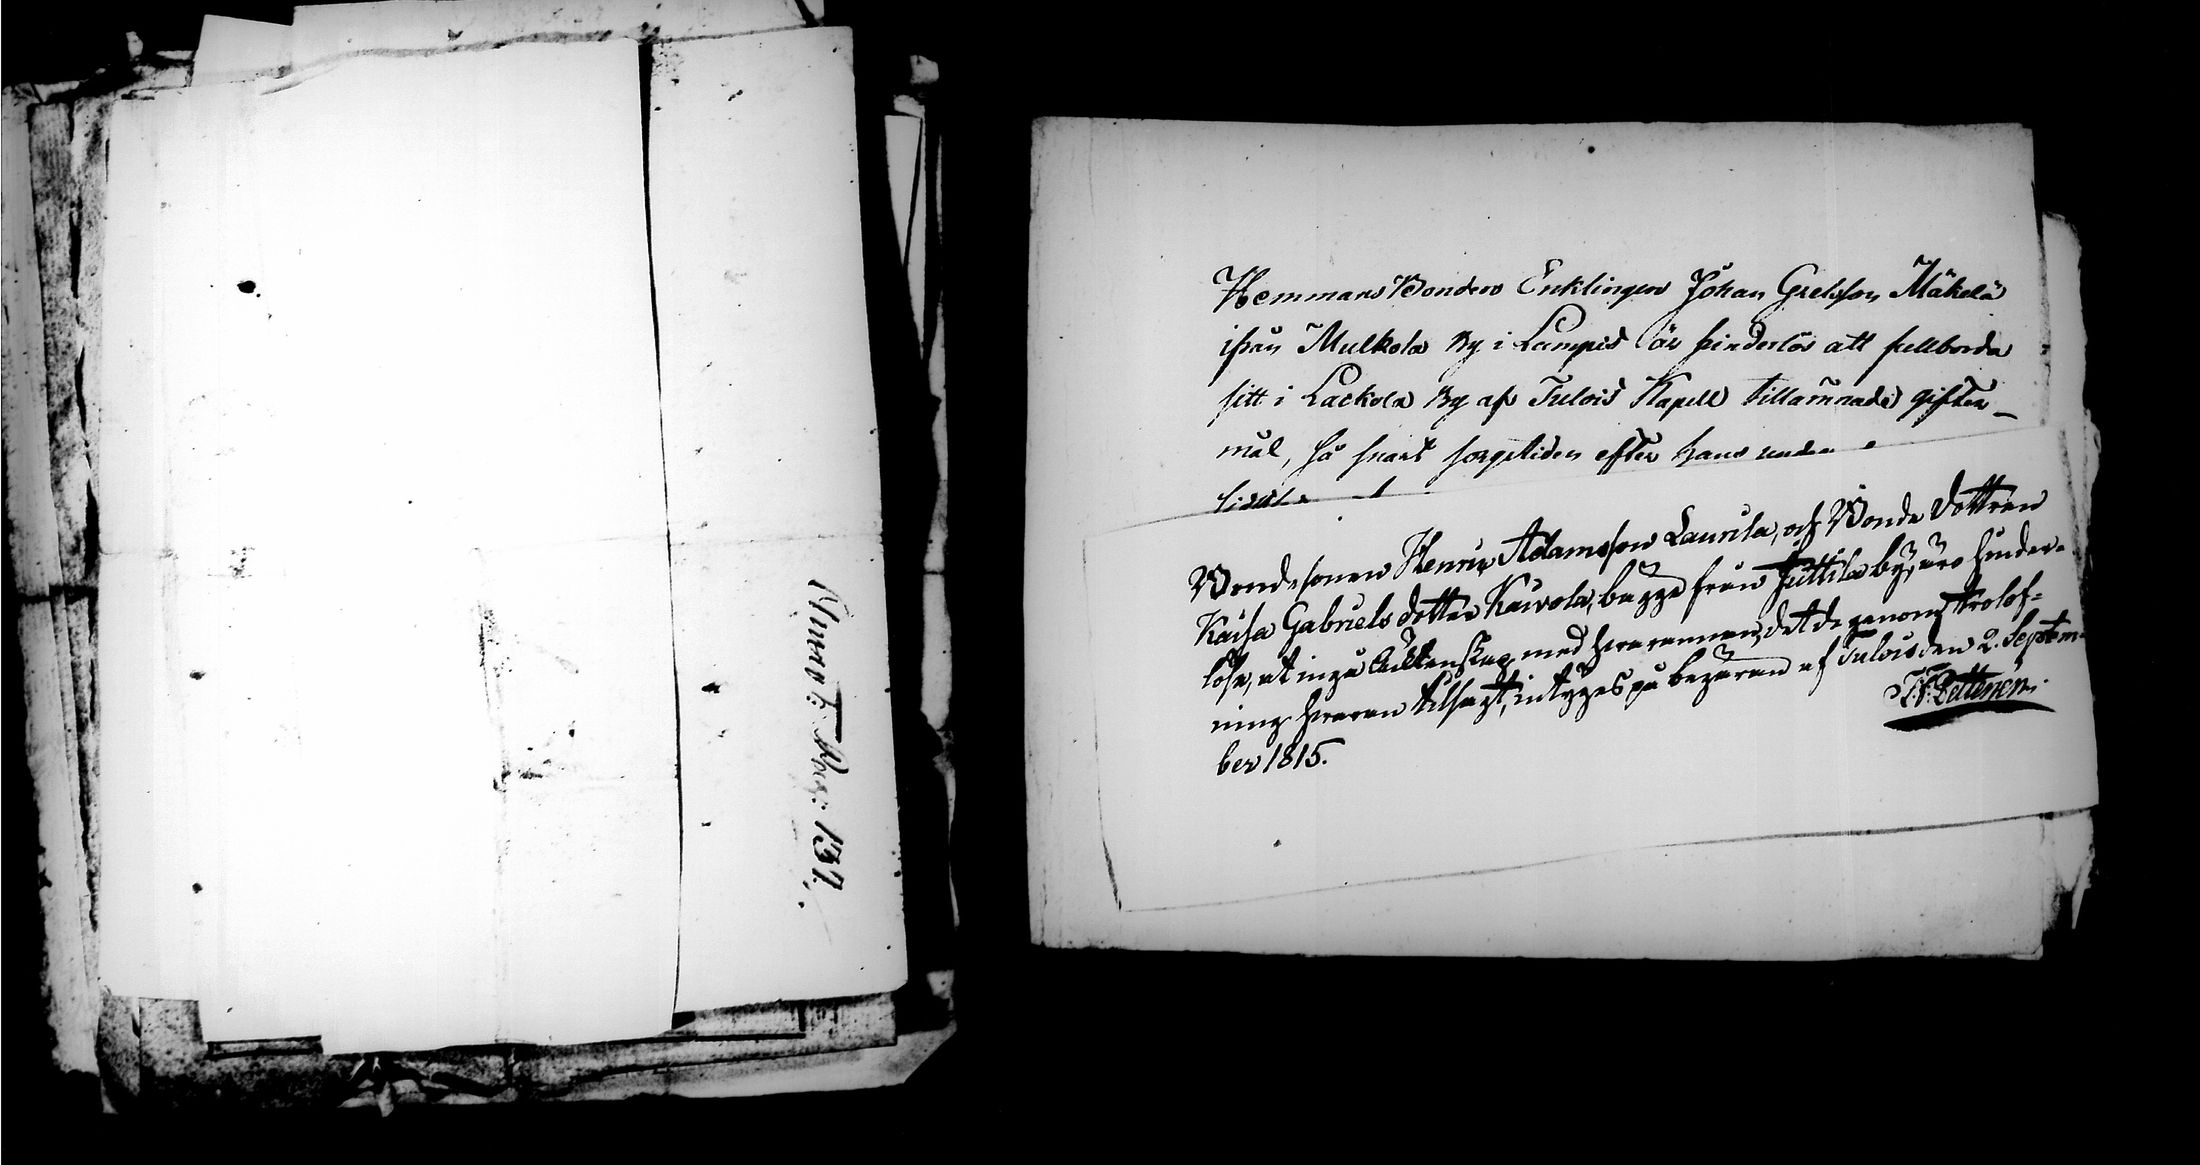 Hemmans Bonden Enklingen Johan Grelsson Mäkelä
ifrån Mulkola By i Lampis är hinderlös att fullborda
sitt i Lackola By af Tulois Kapell tillämnade gifter_
mål, så snart sorgetiden efter hans
Bondesonen Henric Adamsson Laurila, och Bonde Dottren
Kaisa Gabriels dotter Kaivola, bägge från Juttila by, äro hinder=
löse, at ingå Äcktenskap med hvarannan, det de genom trolof=
ning hvaran tilsagt, intygges på begäran af Tulois den 2. Septem=
ber 1815.
137.